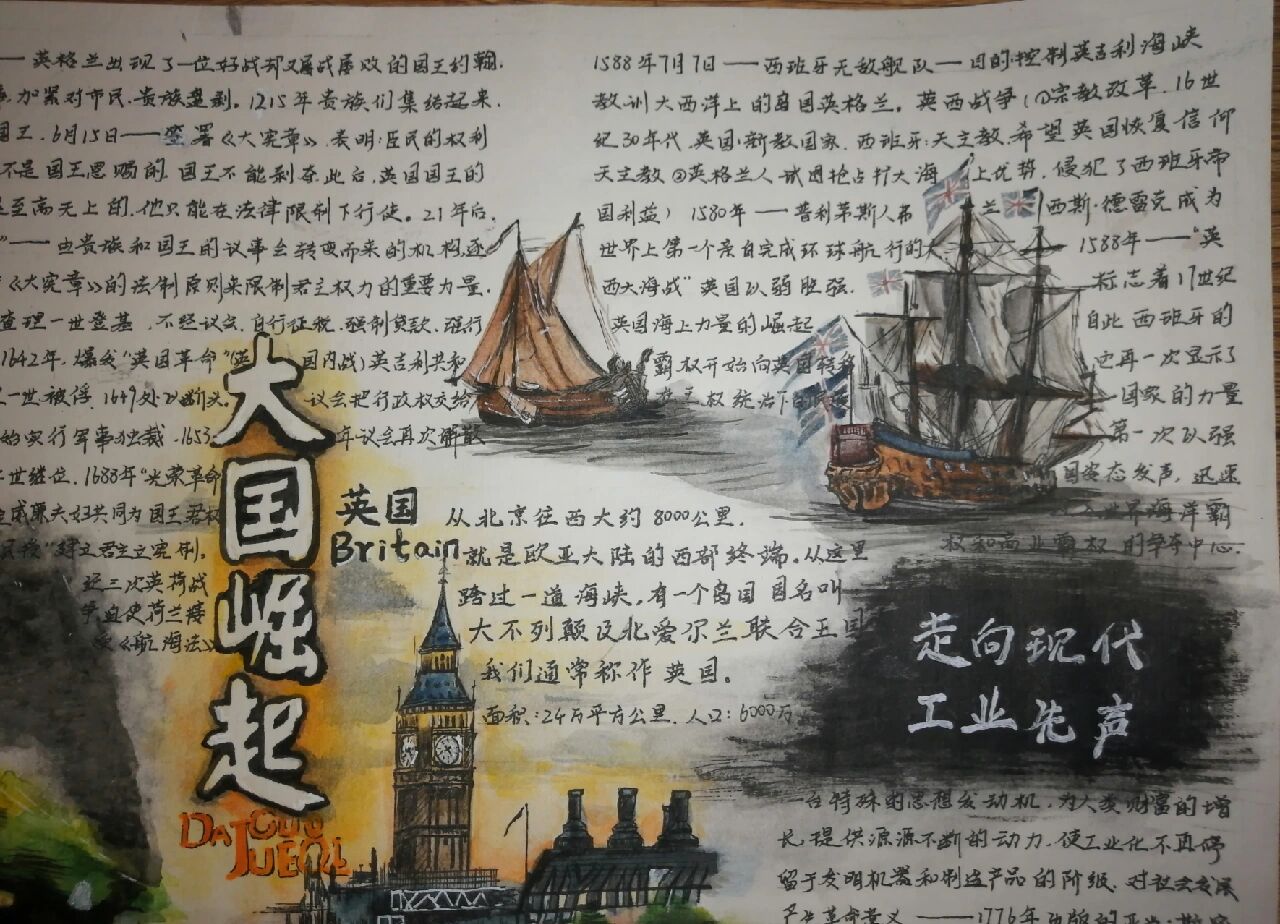 英格兰出现了一位好战却又屡战屡败的国王约翰.
加紧对市民.贵族盘剥。1215年贵族们集结起来.
国王.6月15日——签署《大宪章》.表明:臣民的权利
不是国王恩赐的.国王不能剥夺此后.英国国王的
至高无上的.他只能在法律限制下行使。21年后.
”——由贵族和国王的议事会转变而来的机构逐
《大宪章》的法制原则来限制君主权力的重要力量.
查理一世登基.不经议会.自行征税.强制贷款.强行
1642年.爆发“英国革命”
国内战)英吉利共和
一世被俘.1649处以断头。
议会把行政权交给
始实行军事独裁.1653
年议会再次解散
世继位.1688年“光荣革命
夫妇共同为国王君权
君主立宪制.
三次英荷战
争迫使荷兰接
《航海法》
1588年7月7日——西班牙无敌舰队—目的:控制英吉利海峡
教训大西洋上的岛国英格兰。英西战争(①宗教改革.16世
纪30年代.英国:新教国家.西班牙:天主教.希望英国恢复信仰
天主教②英格兰人试图抢占打大海
上优势.侵犯了西班牙帝
国利益)1580年——普利茅斯人弗
兰
西斯·德雷克成为
世界上第一个亲自完成环球航行的
1588年——“英
西大海战”英国以弱胜强.
标志着17世纪
英国海上力量的崛起
自此西班牙的
霸权开始向英国转移
也再一次显示了
权统治下
国家的力量
第一次以强
国姿态发声,迅速
世界海洋霸
权和商业霸权的争夺中心.
大国崛起
DAGUO
JUEQI
英国
Britain
从北京往西大约8000公里.
就是欧亚大陆的西部终端。从这里
跨过一道海峡,有一个岛国国名叫
大不列颠及北爱尔兰联合王国
我们通常称作英国。
面积:24万平方公里.人口:6000万
走向现代
工业先声
一台特殊的思想发动机.为人类财富的增
长提供源源不断的动力.使工业化不再停
留于发明机器和制造产品的阶级.对社会发展
产生革命意义——1776年出版的